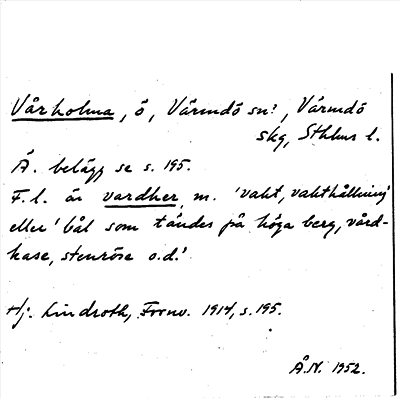 Vårholma, ö, Värmdö sn!, Värmdö
skg, Sthlms l.
Ä. belägg se s. 195.
F.l. är vardher, m. 'vakt, vakthållning'
eller 'bål som tändes på höga berg, vård-
kase, stenröse o.d.'
Hj. Lindroth, Fornv. 1914, s. 195.
Å.N. 1952.